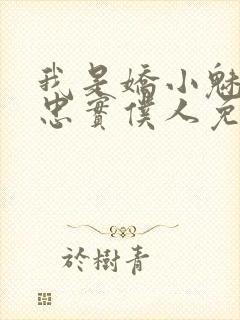 我是嬌小魅
忠實僕人免
於樹青